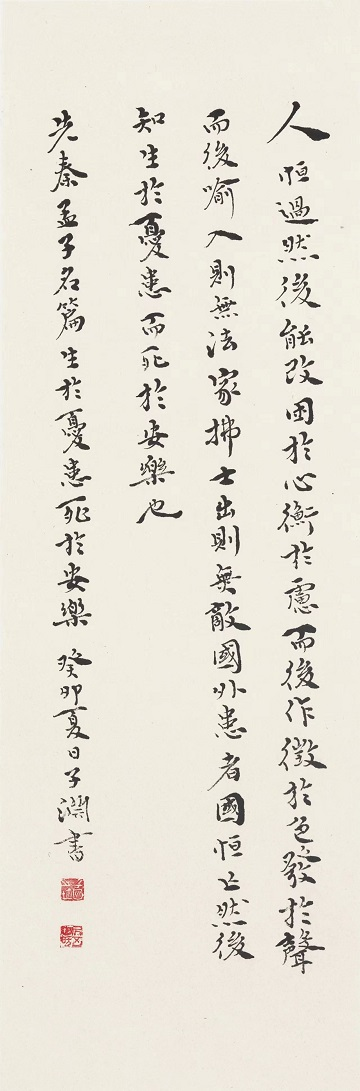 人恒過然後能改困於心衡於慮而後作徵於色發於聲
而後喻入則無法家拂士出則無敵國外患者國恒亡然後
知生於憂患而死於安樂也
先秦孟子名篇生於憂患死於安樂 癸卯夏日子淵書